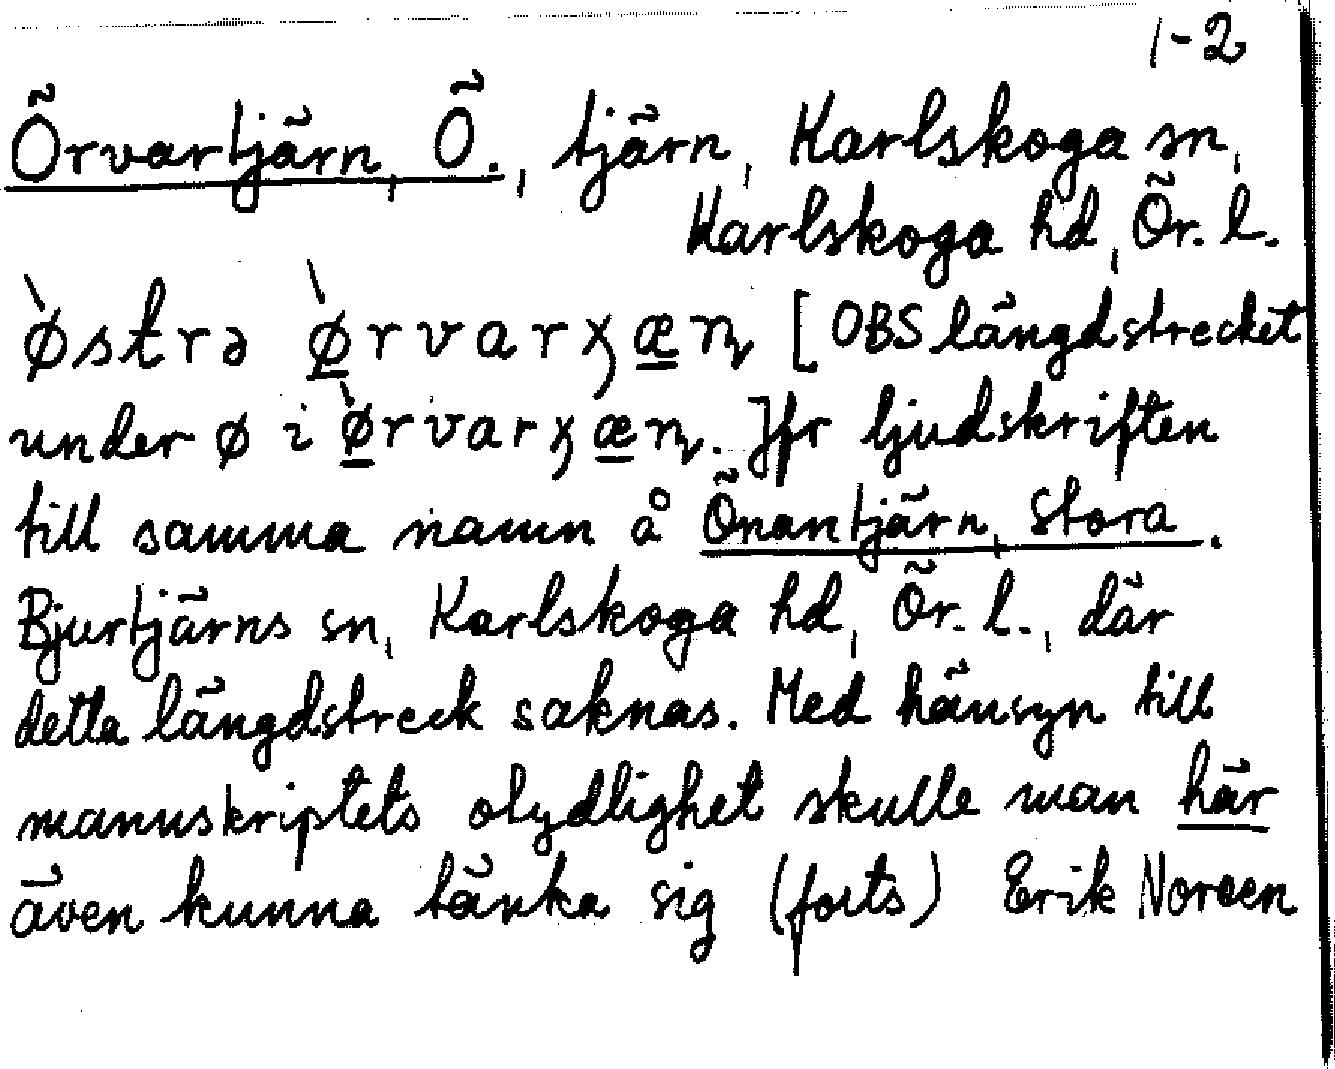 1-2
Örvartjärn, Ö., tjärn, Karlskoga sn,
Karlskoga hd, Ör. l.
`østrə `ø̱rvarχæ̱ɳ [OBS längdstrecket
under ø i `ø̱rvarχæ̱ɳ. Jfr ljudskriften
till samma namn å Önantjärn, Stora.
Bjurtjärns sn, Karlskoga hd, Ör. l., där
detta längdstreck saknas. Med hänsyn till
manuskriptets otydlighet skulle man här
även kunna tänka sig (forts) Erik Noreen